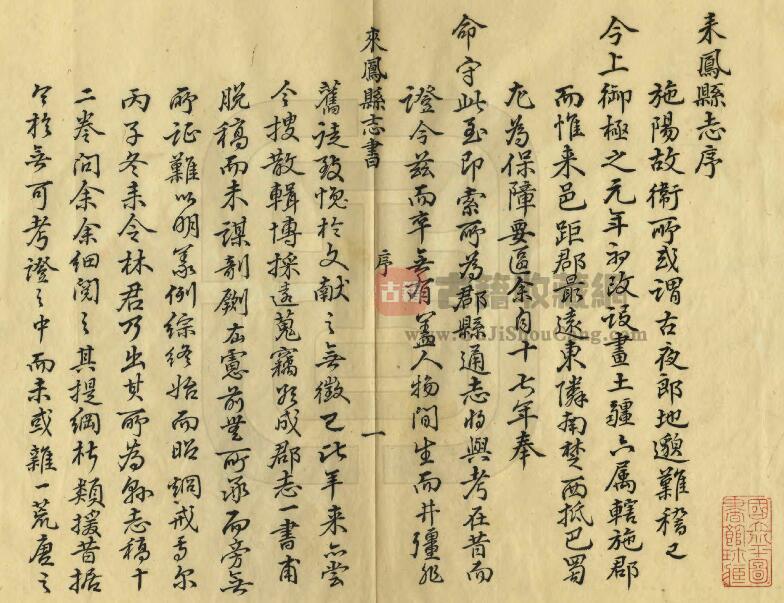 来鳳縣志序
施陽故衛所或謂古夜郎地邈難稽已
今上御極之元年初改設畫土疆六属轄施郡
而惟来邑距郡最遠東隣南楚西抵巴蜀
尤為保障要區余自十七年奉
命守此至即索所為郡縣通志將與考在昔而
證今兹而卒無有盖人物間生而井疆非
來鳳縣志書
序
一
舊徒致慨於文献之無徵已比年来亦嘗
令搜散輯博採遠蒐竊欲成郡志一書甫
脱稿而未謀剞劂在憲前無所承而旁無
所証難以明義例綜終始而昭烱戒焉尔
丙子冬来令林君乃出其所為縣志稿十
二卷問余余細閱之其提綱析類援昔据
今於無可考證之中而未或雜一荒唐之
古籍收藏網
www.GuJiShouCang.com
國立圖
書館珍